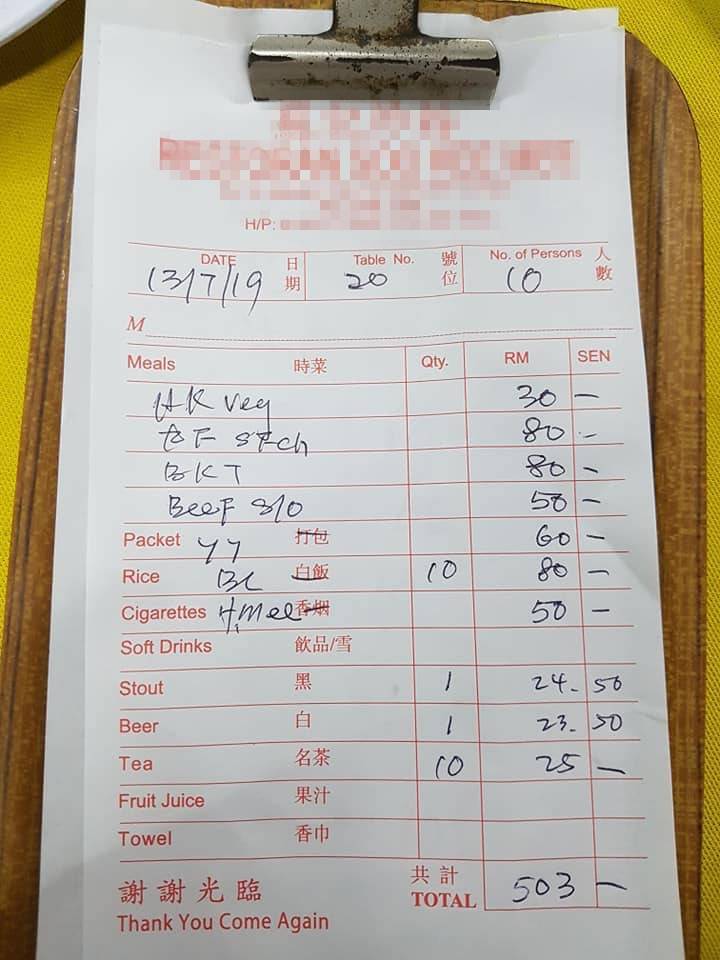 H/P:
DATE 日期 Table No. 號位 No. of Persons 人數
13/7/19 20 10
M
Meals 時菜 Qty. RM SEN
HK veg 30 —
80 —
BKT 80 —
Beef S/O 50 —
Packet YY 打包 60 —
Rice 白飯 10 80 —
Cigarettes H.Mee 香烟 50 —
Soft Drinks 飲品/雪
Stout 黑 1 24. 50
Beer 白 1 23. 50
Tea 名茶 10 25 —
Fruit Juice 果汁
Towel 香巾
謝謝光臨 共計
Thank You Come Again TOTAL 503 —